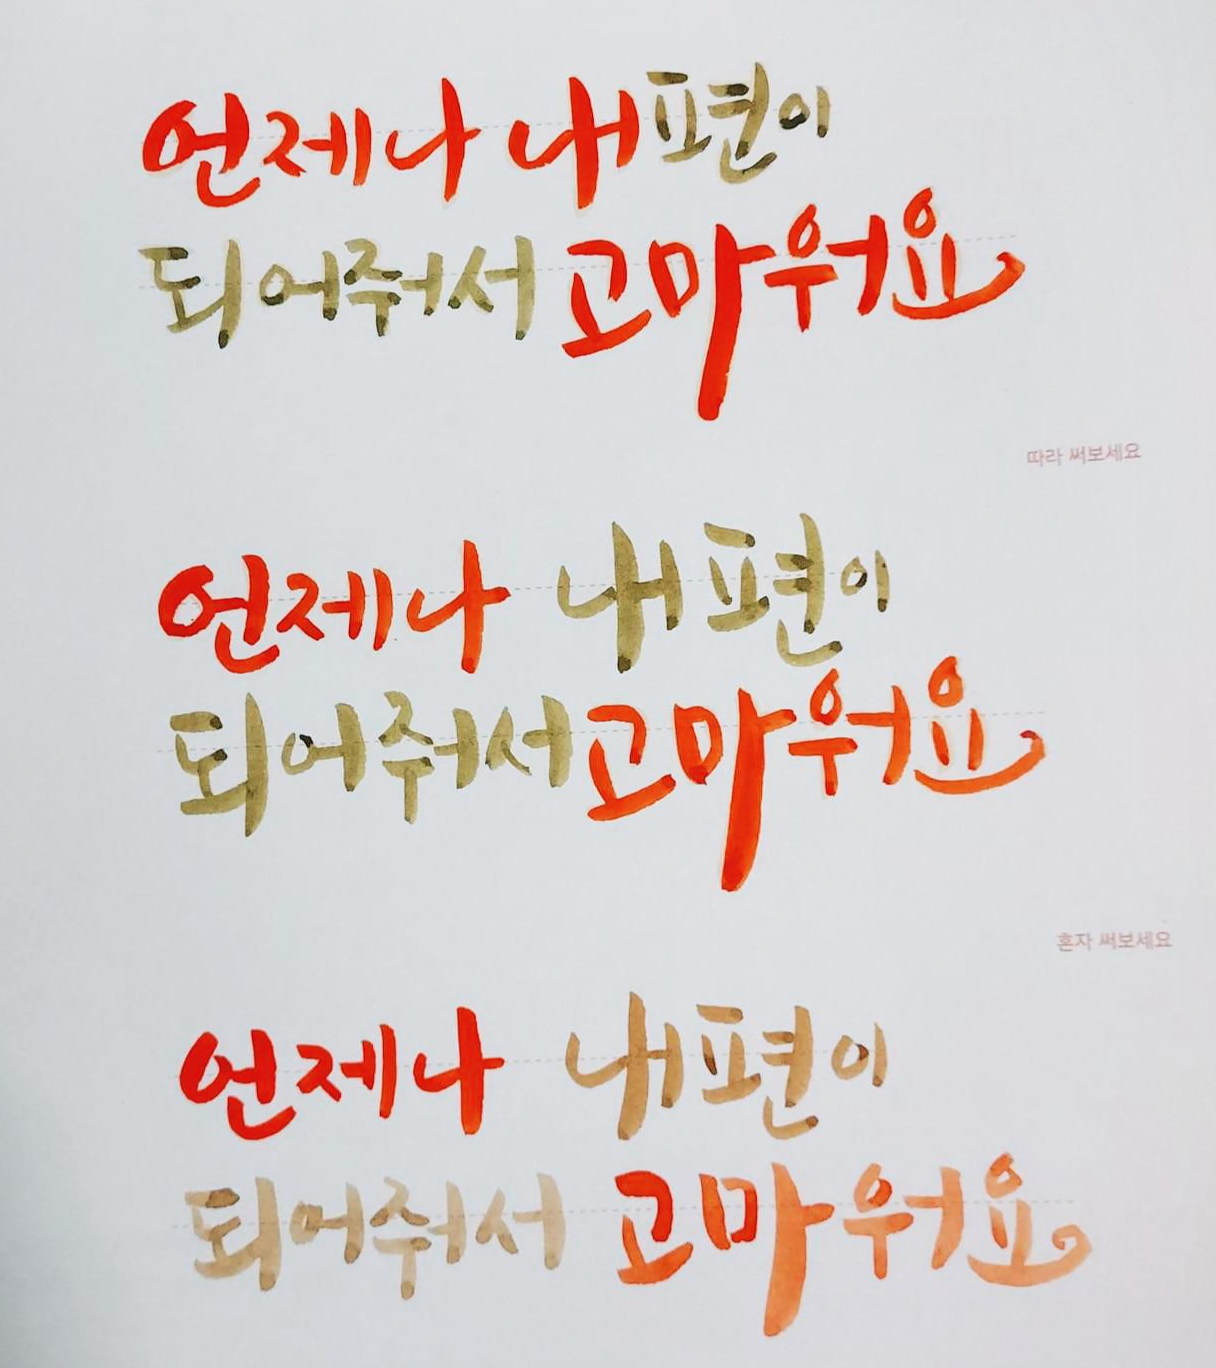 언제나 내편이
되어줘서 고마워요
따라 써보세요
언제나 내편이
되어줘서 고마워요
혼자 써보세요
언제나 내편이
되어줘서 고마워요